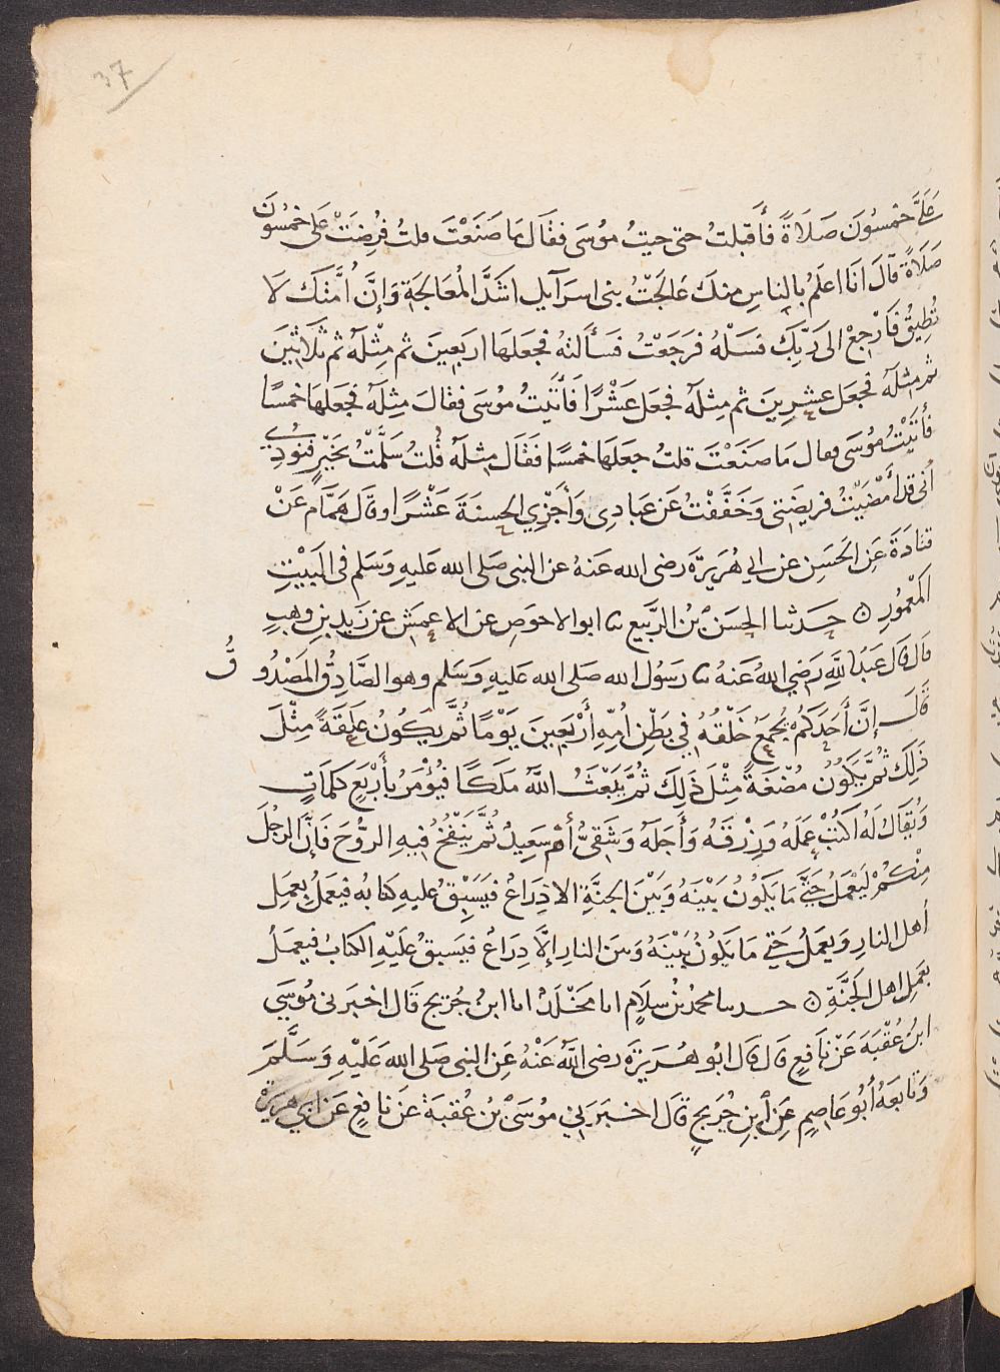 37
عَلَيَّ خمسُونَ صَلَاةً فَأَقبلتُ حتى جيتُ مُوسَى فقَالَ مَا صَنَعْتَ قلتُ فُرِضَتْ عَلَى خمسُونَ
صَلَاةً قَالَ انَا اعلَمُ بالناسِ منكَ عَالجَتُ بنى اسرَآيل اشَدَّ المُعَالجَةِ وَإِنَّ اُمَّتَكَ لَا
تُطِيقُ فَارْجِعْ الى رَبِّكَ فسَلْهُ فرَجَعْتُ فسَأَلتهُ فجعَلهَا اربَعِينَ ثم مِثْلَهُ ثم ثلَاثِينَ
ثم مثلَهُ فجعَل عشرِينَ ثم مِثلَهُ فجعَل عَشْرًا فَأَتَيتُ مُوسَى فقالَ مِثلَهُ فجعَلهَا خمسًا
فأَتَيْتُ مُوسَى فقال مَا صَنَعْتَ قلتُ جعَلهَا خمسًا فقَالَ مثلَهُ قُلتُ سَلَّمْتُ بخَيْرٍ فنُودِيَ
أنى قد أَمْضَيْتُ فريضَتى وَخَفَّفْتُ عَن عبَادِى وَأَجْزِي الحسنَةَ عَشْرًا وقَال هَمَّام عَنْ
قتَادَةَ عَنِ الحَسَنِ عن ابي هُرَيرَةَ رضى الله عَنهُ عن النبى صَلى الله عَليهِ وَسَلم في البَيْتِ
المَعْمُورِ ه حَدثنا الحسَن بْنُ الرَّبيع ثنا ابو الاحوَصِ عن الاعمَش عن زَيدِ بنِ وهبٍ
قال قال عَبْدُ اللهِ رَضي اللهُ عَنهُ ثنا رَسُول الله صلى الله عَليهِ وَسَلم وهو الصَّادِقُ المَصْدُوقُ
قَالَ إنَّ أَحَدَكُم يُجمَعُ خَلْقُهُ فِي بَطْنِ أُمِّهِ أَرْبَعِينَ يَوْمًا ثُمَّ يكُونُ عَلَقَةً مِثْلَ
ذَلِكَ ثُمَّ يَكُونُ مُضْغَةً مِثْلَ ذَلِكَ ثُمَّ يَبْعَثُ اللهُ مَلَكًا فَيُؤْمَرُ بِأَرْبَعِ كَلمَاتٍ
وَيُقَالُ لَهُ اكتُبْ عَمَلَهُ وَرِزْقَهُ وَأَجَلَهُ وَشَقِىٌّ أَمْ سَعِيدٌ ثُمَّ يَنْفُخُ فِيهِ الرُّوحَ فَإِنَّ الرجُلَ
مِنْكُمْ لَيَعْمَلُ حَتَّى مَا يَكُونُ بَيْنَهُ وَبَيْنَ الجنَّةِ الا ذِرَاعُ فيَسبِقُ عليهِ كتابُه فيَعمَلُ بعمَلِ
أهل النارِ وَيعمَلُ حَتى مَا يَكُونُ بَيْنَهُ وَبين النارِ إلَّا ذِرَاعُ فيَسبقُ عَلَيْهِ الكتابُ فيعمَلُ
بعَمِل اهل الجَنَّةِ ه حدثنا محمدُ بْنُ سلَامٍ انا مَخْلَدٌ انا ابنُ جُرَيج قَال اخبَرنى مُوسَى
ابنُ عُقْبَةَ عَنْ نَافعٍ قال قال ابُو هُرَيرَةَ رضى اللهُ عَنْهُ عَنِ النبى صَلى الله عَلَيْهِ وَسَلَّمَ
وَتابَعَهُ أَبُو عَاصِمٍ عَنِ ابنِ جُرَيجٍ قَال اخبَرَنِي مُوسَىْ بْنُ عُقبَةَ عَنْ نَافعٍ عَن ابي هريرة